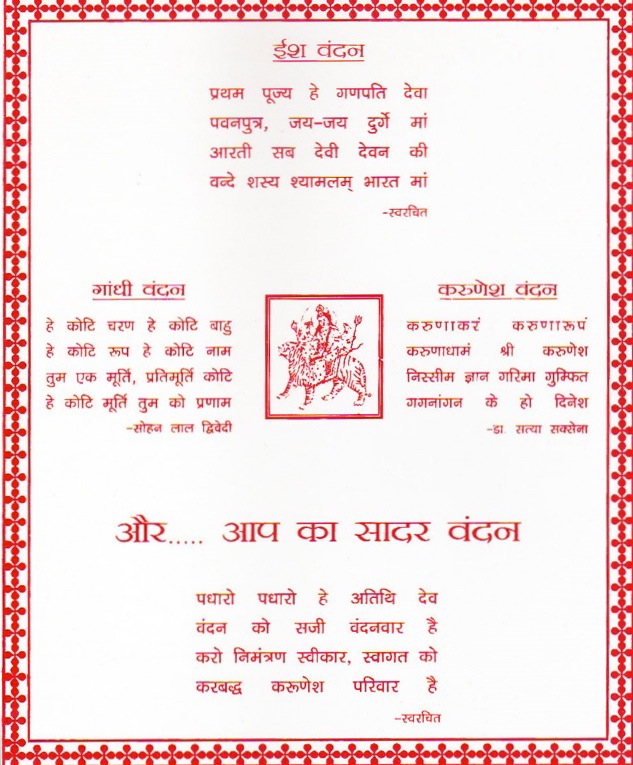 ईश वंदन
प्रथम पूज्य हे गणपति देवा
पवनपुत्र, जय-जय दुर्गे मां
आरती सब देवी देवन की
वन्दे शस्य श्यामलम् भारत मां
-स्वरचित
गांधी वंदन
हे कोटि चरण हे कोटि बाहु
हे कोटि रूप हे कोटि नाम
तुम एक मूर्ति, प्रतिमूर्ति कोटि
हे कोटि मूर्ति तुम को प्रणाम
-सोहन लाल द्विवेदी
करुणेश वंदन
करुणाकरं करुणारूपं
करुणाधामं श्री करुणेश
निस्सीम ज्ञान गरिमा गुम्फित
गगनांगन के हो दिनेश
-डा. सत्या सक्सेना
और..... आप का सादर वंदन
पधारो पधारो हे अतिथि देव
वंदन को सजी वंदनवार है
करो निमंत्रण स्वीकार, स्वागत को
करबद्ध करूणेश परिवार है
-स्वरचित